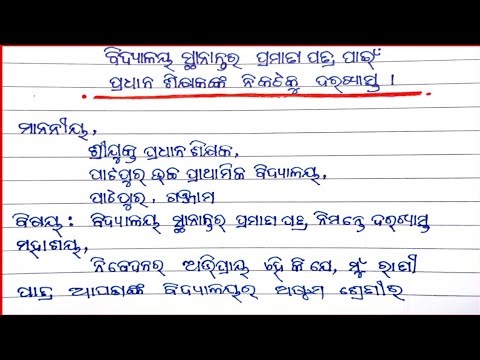 ବିଦ୍ୟାଳୟ ସ୍ଥାନାନ୍ତର ପ୍ରମାଣ ପତ୍ର ପାଇଁ
ପ୍ରଧାନ ଶିକ୍ଷକଙ୍କ ନିକଟକୁ ଦରଖାସ୍ତ ।
ମାନନୀୟ,
ଶ୍ରୀଯୁକ୍ତ ପ୍ରଧାନ ଶିକ୍ଷକ,
ପାଟପୁର ଉଚ୍ଚ ପ୍ରାଥମିକ ବିଦ୍ୟାଳୟ,
ପାଟପୁର, ଗଞ୍ଜାମ
ବିଷୟ : ବିଦ୍ୟାଳୟ ସ୍ଥାନାନ୍ତର ପ୍ରମାଣ ପତ୍ର ନିମନ୍ତେ ଦରଖାସ୍ତ
ମହାଶୟ,
ନିବେଦନର ଅଭିପ୍ରାୟ ଏହି କି ଯେ, ମୁଁ ରାଣୀ
ପାତ୍ର ଆପଣଙ୍କ ବିଦ୍ୟାଳୟର ଅଷ୍ଟମ ଶ୍ରେଣୀର